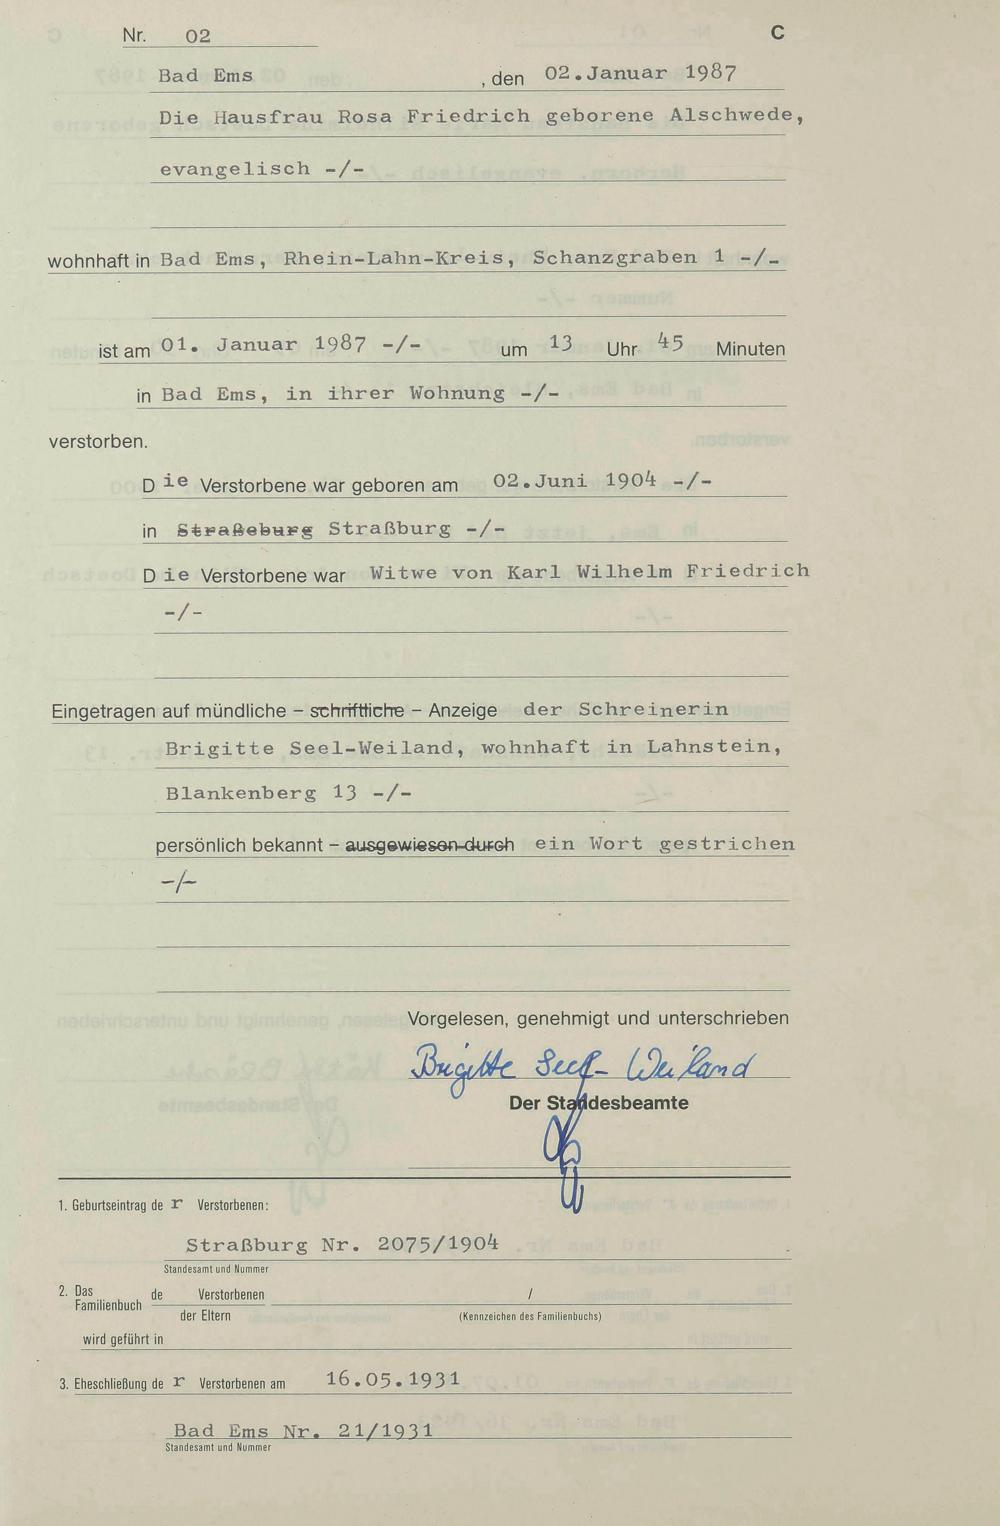 Nr. 02 C
Bad Ems , den 02.Januar 1987
Die Hausfrau Rosa Friedrich geborene Alschwede,
evangelisch -/-
wohnhaft in Bad Ems, Rhein-Lahn-Kreis, Schanzgraben 1 -/-
ist am 01. Januar 1987 -/- um 13 Uhr 45 Minuten
in Bad Ems, in ihrer Wohnung -/-
verstorben.
Die Verstorbene war geboren am 02.Juni 1904 -/-
in Straßeburg Straßburg -/-
Die Verstorbene war Witwe von Karl Wilhelm Friedrich
-/-
Eingetragen auf mündliche – schriftliche – Anzeige der Schreinerin
Brigitte Seel-Weiland, wohnhaft in Lahnstein,
Blankenberg 13 -/-
persönlich bekannt – ausgewiesen durch ein Wort gestrichen
-/-
Vorgelesen, genehmigt und unterschrieben
Brigitte Seel-Weiland
Der Standesbeamte
1. Geburtseintrag der Verstorbenen:
Straßburg Nr. 2075/1904
Standesamt und Nummer
2. Das Familienbuch de Verstorbenen /
der Eltern (Kennzeichen des Familienbuchs)
wird geführt in
3. Eheschließung der Verstorbenen am 16.05.1931
Bad Ems Nr. 21/1931
Standesamt und Nummer